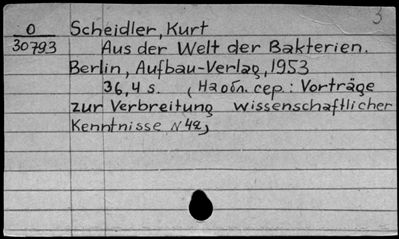 3
O
30793
Scheidler, Kurt
Aus der Welt der Bakterien.
Berlin, Aufbau-Verlag, 1953
36,4 s. (На обл. сер.: Vorträge
zur Verbreitung wissenschaftlicher
Kenntnisse N 42)